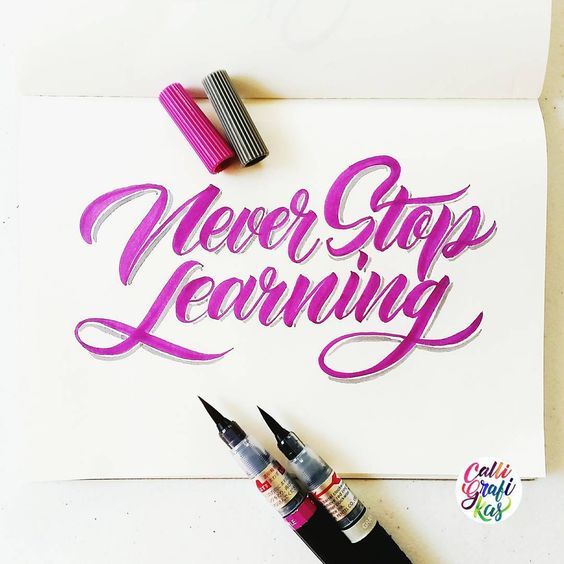 Never Stop
Learning
Calli
Grafi
kas